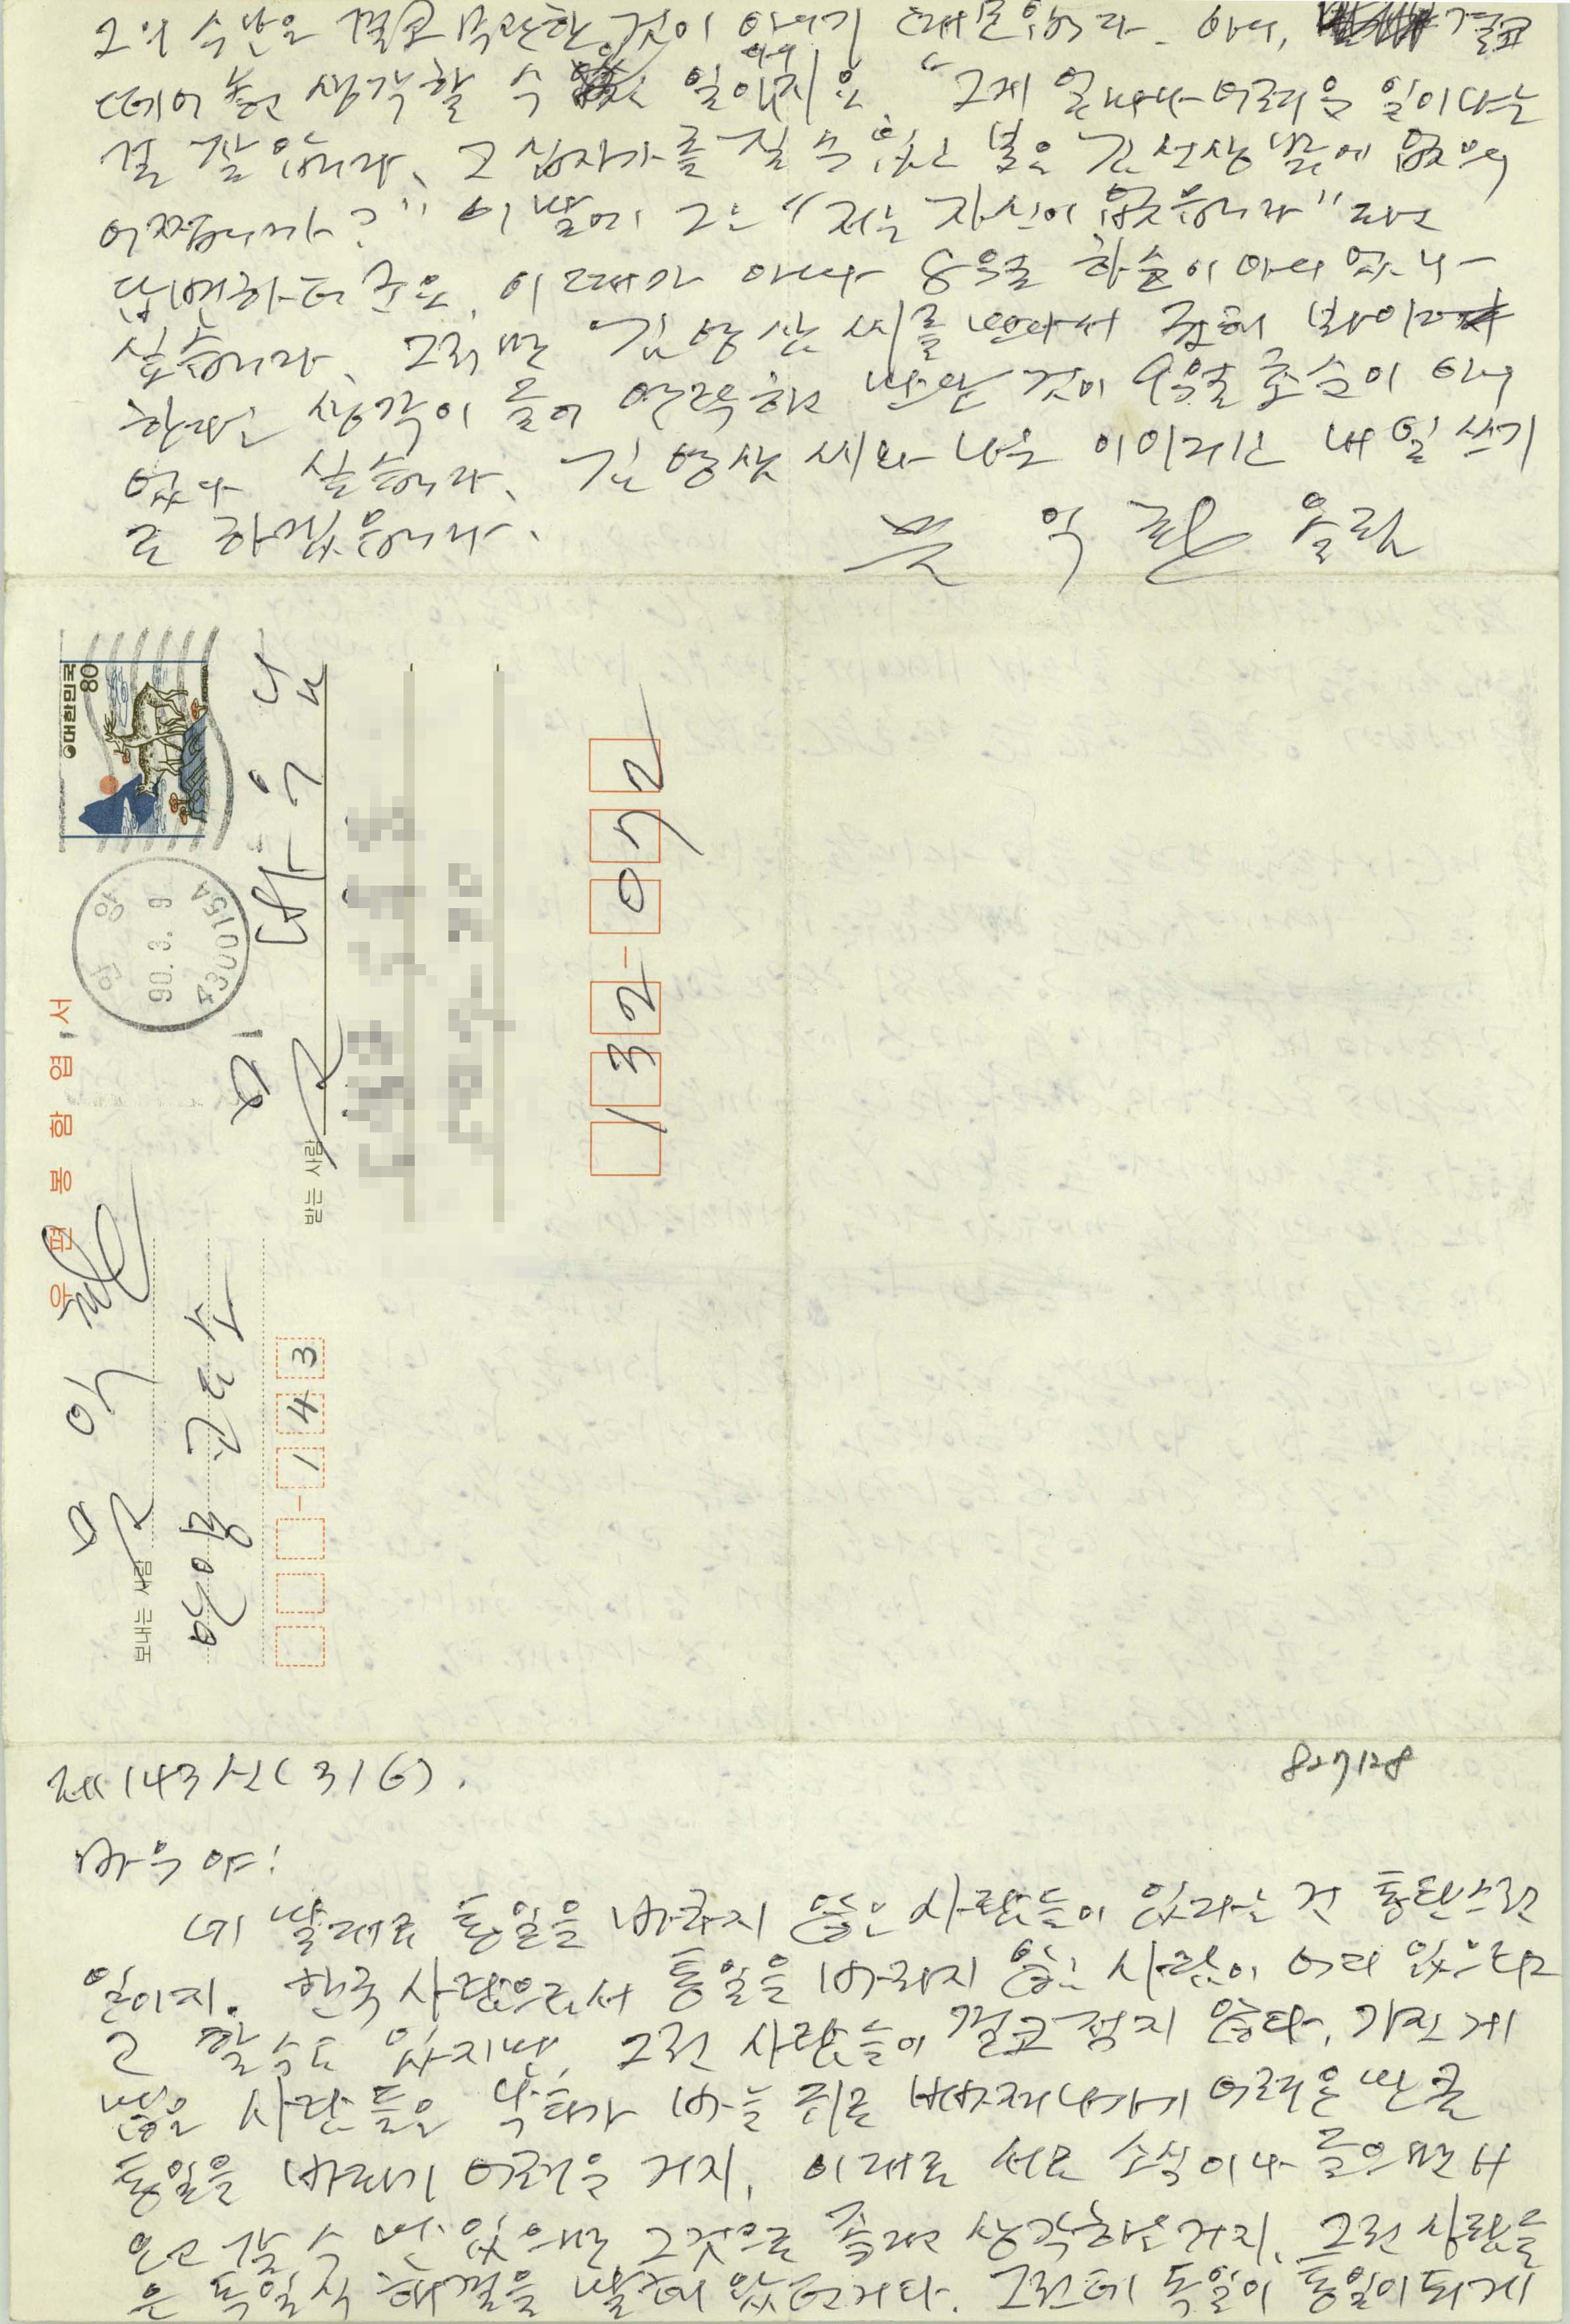 그의 수난은 결코 못난한 것이 아니기 때문입니다. 아니, 결코
떼어 놓고 생각할 수 없는 일이지요 "그게 얼마나 어려운 일이라는
걸 잘 압니다. 그 십자가를 질 수 있는 분은 김선생 밖에 없으니
어쩝니까?" 이 말에 그는 "저는 자신이 없습니다" 라고
답변하더군요. 이 때가 아마 8월 하순이 아니었나
싶습니다. 그러면 김영삼 씨를 만나서 권해 봐야
한다는 생각이 들어 연락하고 만난 것이 9월 초순이 아니
었나 싶습니다. 김영삼 씨와 나눈 이야기는 내일 쓰기
로 하겠습니다.
문 익 환 올림
대한민국 80
안양
90. 3. 9
430015A
우편봉함엽서
보내는 사람
문 익 환
안양 교도소
143
받는 사람
문 바우 님
132-072
제143신(3/6).
827128
바우야!
네 말대로 통일을 바라지 않는 사람들이 있다는 건 통탄스런
일이지. 한국 사람으로서 통일을 바라지 않는 사람이 어디 있으랴
고 할 수도 있지만, 그런 사람들이 결코 적지 않다. 가진 게
많은 사람들은 낙타가 바늘 귀로 빠져나가기 어려운 만큼
통일을 바라기 어려울 거지. 이대로 서로 소식이나 들으면서
오고 갈 수만 있으면 그것으로 족하다고 생각하는 거지. 그런 사람들
은 독일식 해결을 말해 왔던거다. 그런데 독일이 통일이 되게